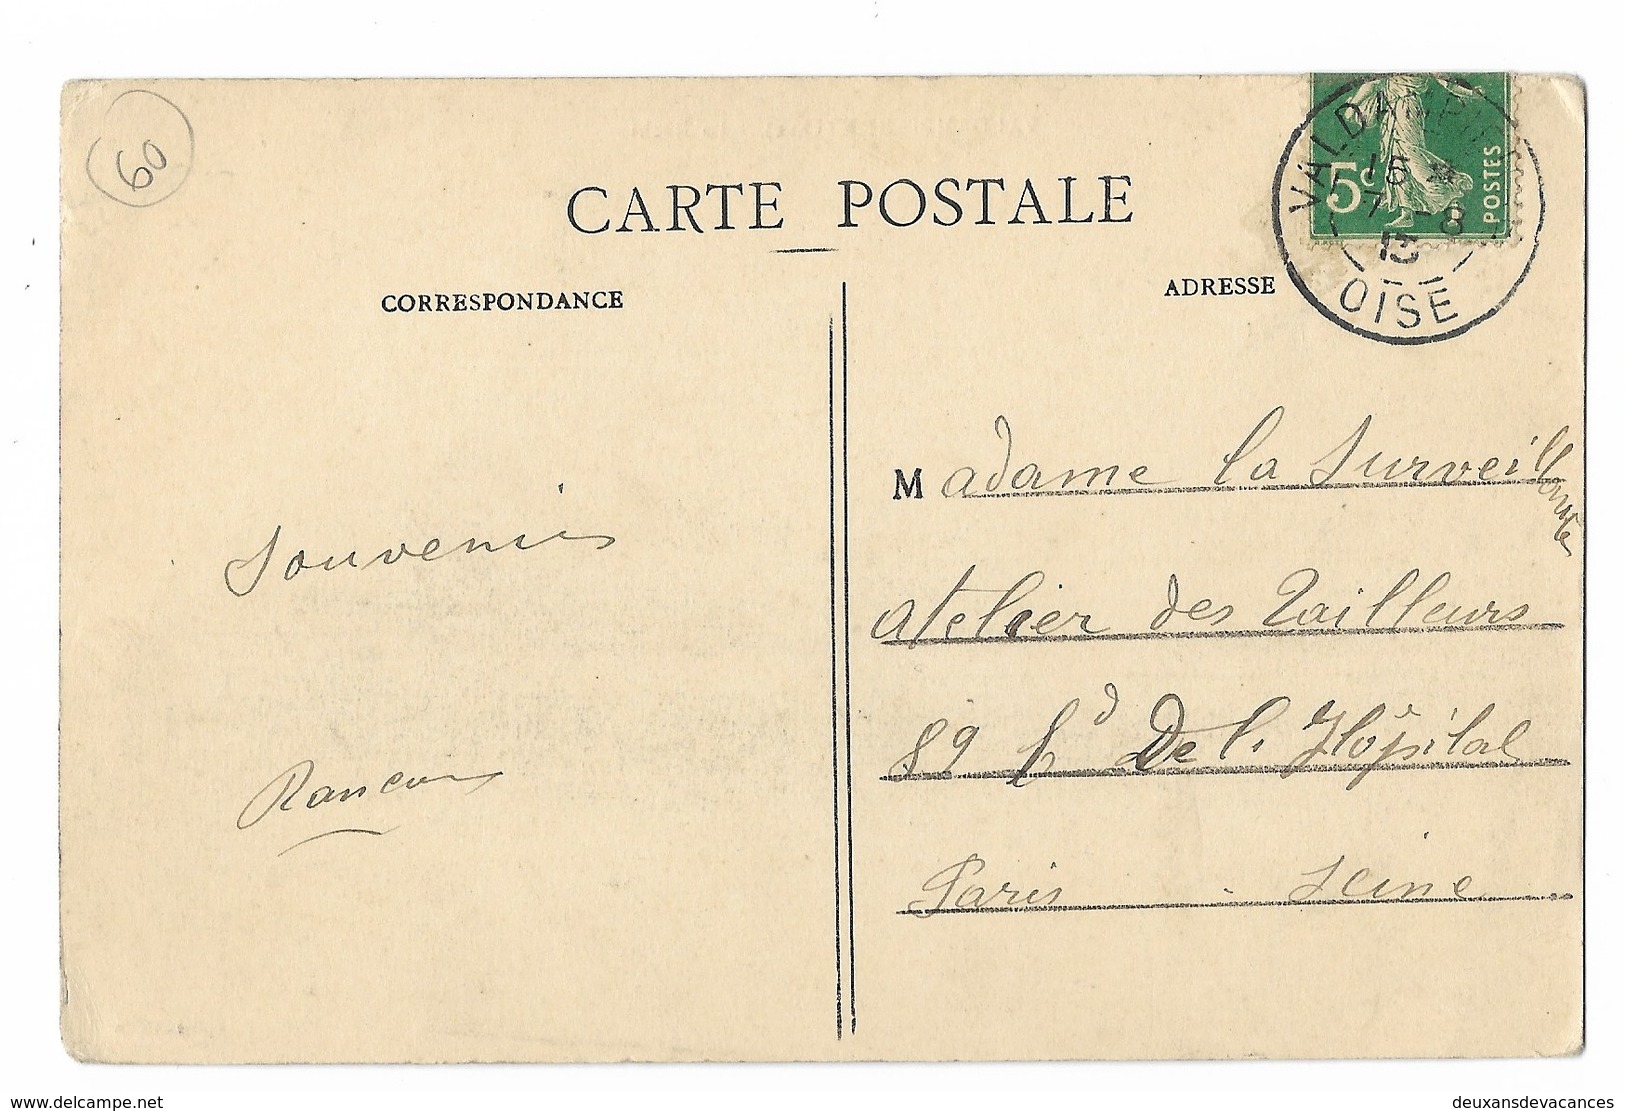 60
CARTE POSTALE
CORRESPONDANCE
ADRESSE
5c
POSTES
15
7 -8
13
OISE
Madame la Surveillante
Souvenirs
atelier des Tailleurs
89 bd De l'Hôpital
Paris - Seine
delcampe.net
deuxansdevacances